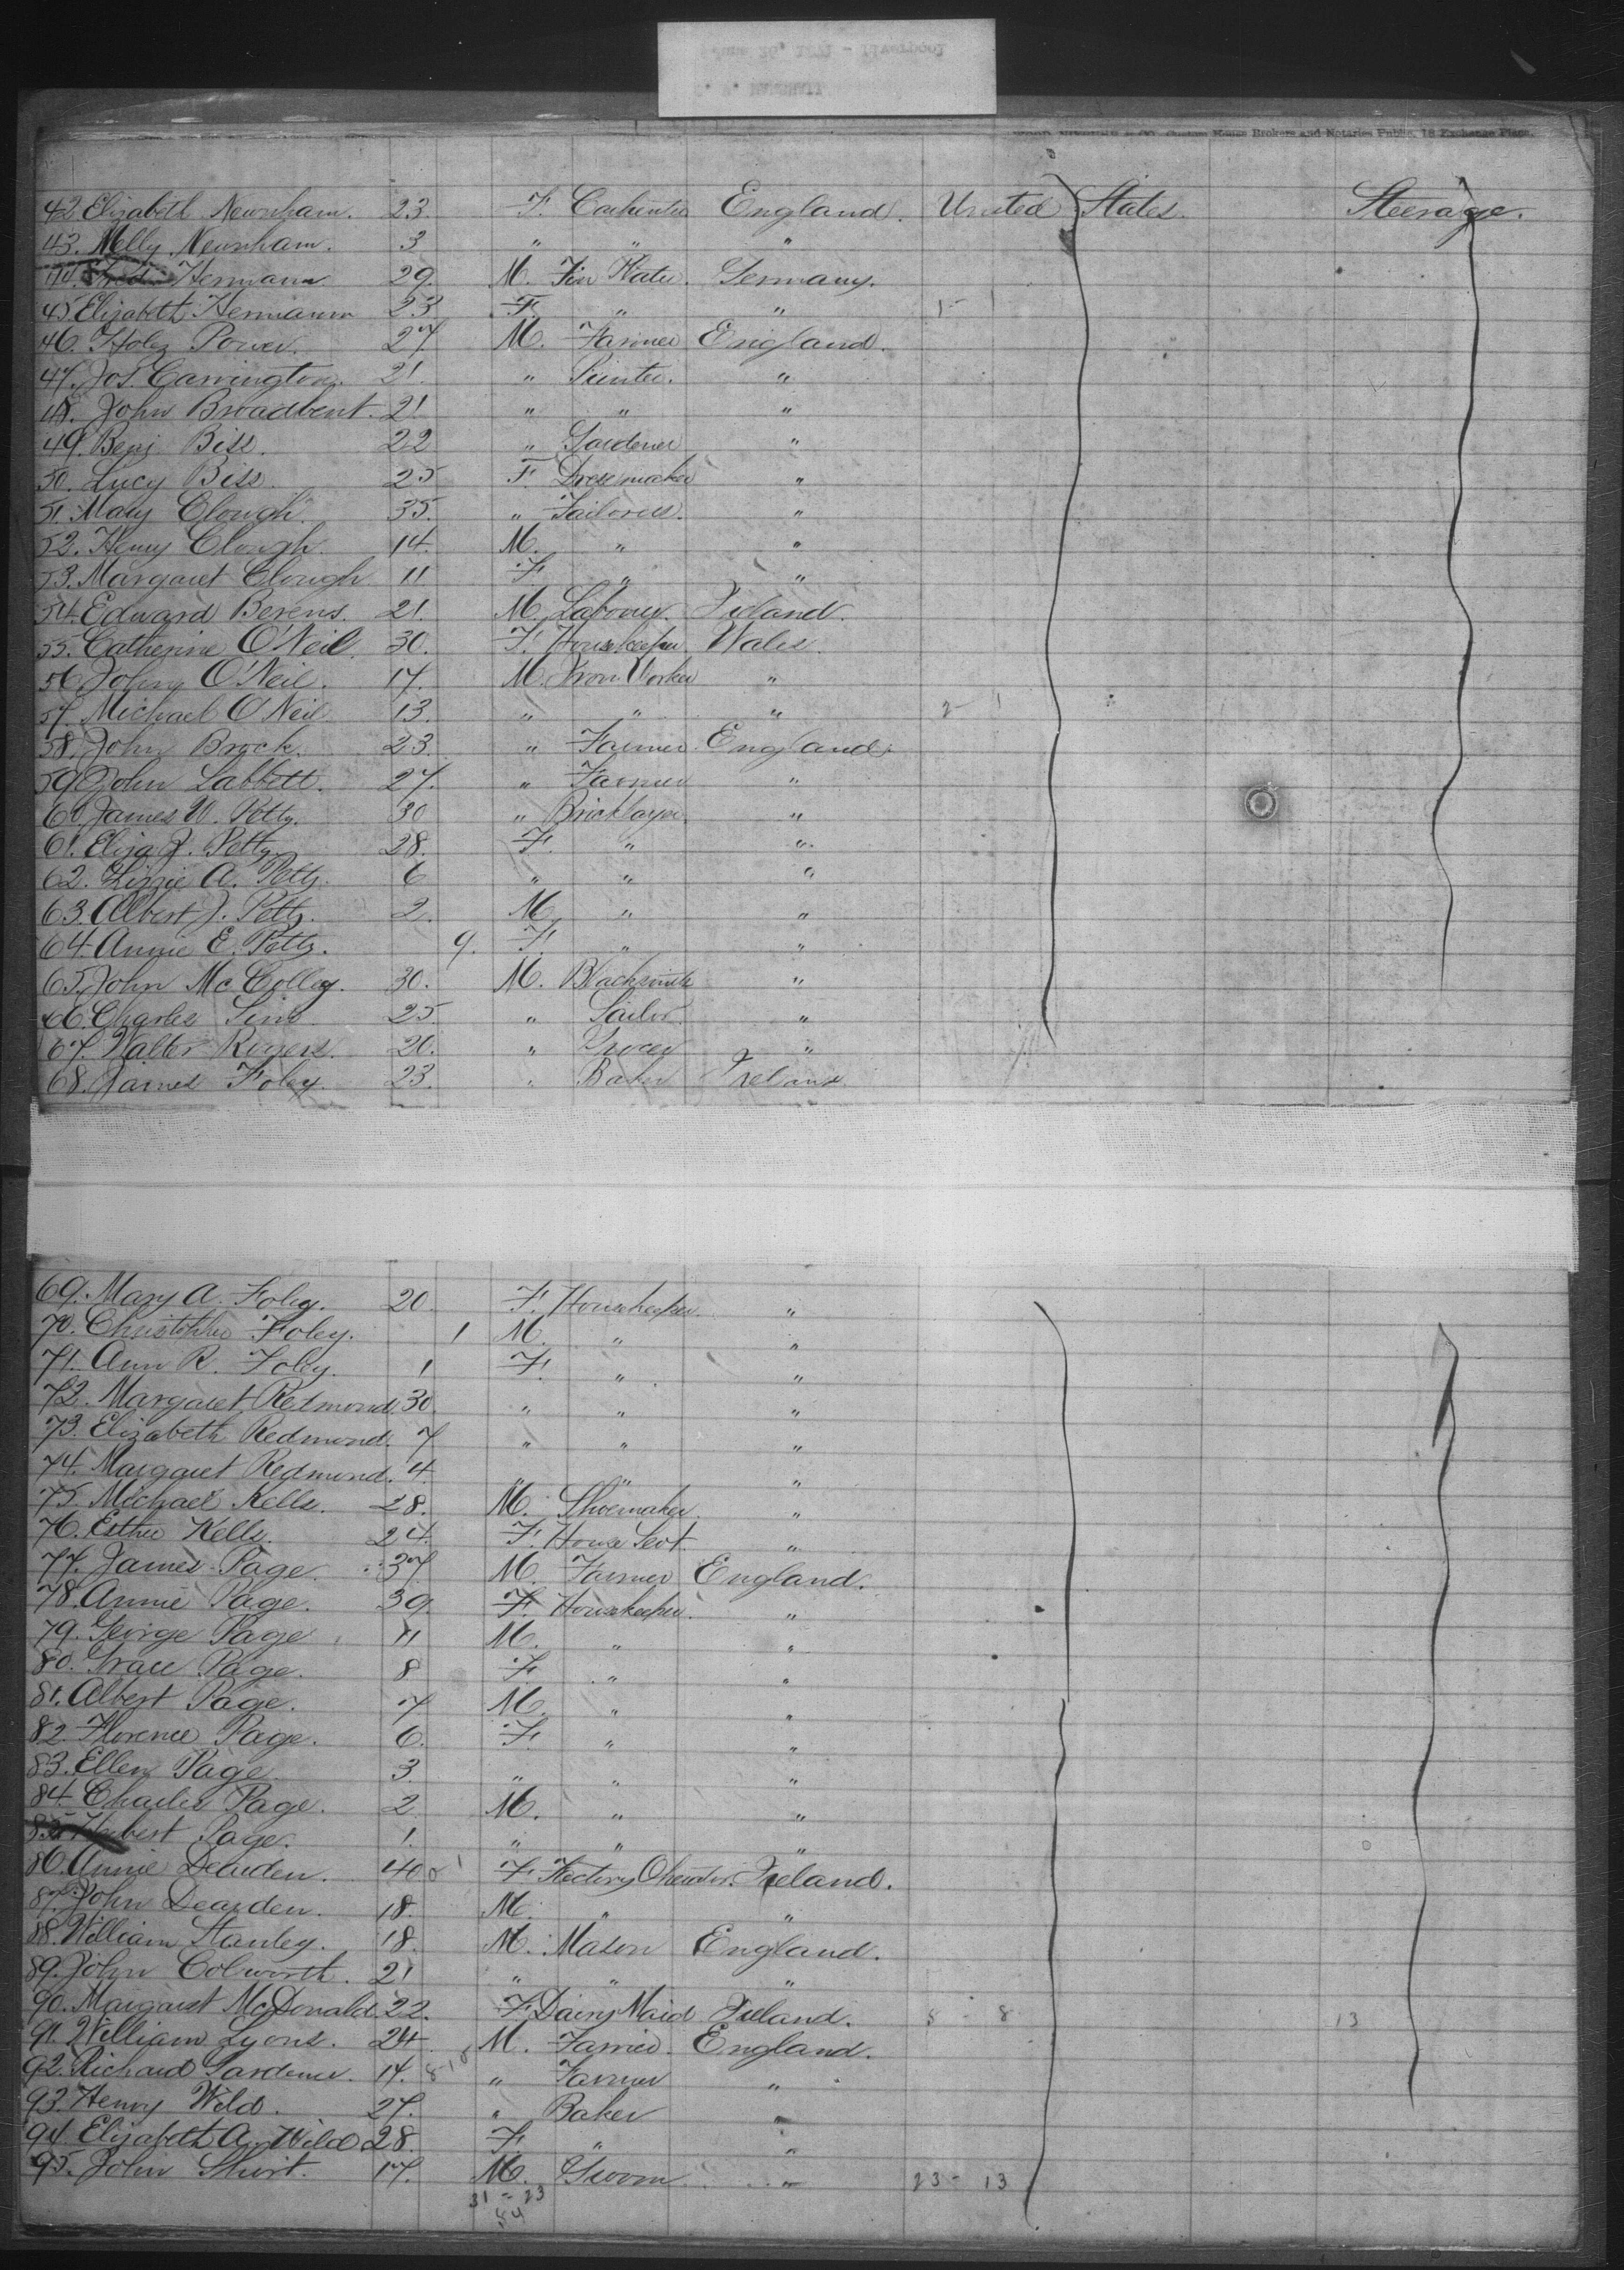 Custom House Brokers and Notaries Public, 18 Exchange Place.
42 Elizabeth Newnham. 23 F. England. United States. Steerage.
43. Nelly Newnham. 3 " " "
44. Hermann 29. M. Tin Plater. Germany.
45 Elizabeth Hermann 23 F " " 1 - 1
46. Power. 27. M. Farmer England.
47. Jos. Carrington. 21. " Printer. "
48. John Broadbent. 21 " " "
49. Benj Biss. 22 " Gardener "
50. Lucy Biss. 25 F. Dressmaker "
51. Mary Clough. 35. " Tailoress. "
52. Henry Clough. 14. M. " "
53. Margaret Clough 11 F " "
54. Edward Berens. 21. M. Labourer. Ireland.
55. Catherine O'Neil. 30. F. Housekeeper Wales.
56 Johny O'Neil. 17. M. Iron Worker "
57. Michael O'Neil 13. " " " 2 - 1
58. John Brock. 23. " Farmer England.
59 John Labbett. 27. " Farmer "
60. James W. Petty. 30 " Bricklayer. "
61. Eliza J. Petty. 28. F. " "
62. Lizzie A. Petty. 6 " " "
63. Albert J. Petty. 2. M. " "
64. Annie E. Petty. 9. F. " "
65. John Mc Colley. 30. M. Blacksmith "
66. Charles 25. " Sailor "
67. Walter Rogers. 20. " Grocer "
68. James Foley. 23. " Baker Ireland
69. Mary A. Foley. 20. F. Housekeeper. "
70. Christopher Foley. 1 M. " "
71. Ann R. Foley. 1 F. " "
72. Margaret Redmond. 30. " " "
73. Elizabeth Redmond. 7 " " "
74. Margaret Redmond. 4. " " "
75. Michael Kells. 28. M. Shoemaker. "
76. Esther Kells. 24. F. House Servt. "
77. James Page. 37 M. Farmer England.
78. Annie Page. 39. F. Housekeeper. "
79. George Page. 11 M. " "
80. Grace Page. 8 F. " "
81. Albert Page. 7 M. " "
82. Florence Page. 6. F. " "
83. Ellen Page. 3. " " "
84. Charles Page. 2. M. " "
85. Herbert Page. 1. " " "
86. Annie Dearden. 40 F Factory Ireland.
87. John Dearden. 18. M. " "
88. William Stanley. 18. M. Mason England.
89. John Colworth. 21 " " "
90. Margaret McDonald. 22. F. Dairy Maid Ireland. 8 - 8 13
91. William Lyons. 24. M. Farrier. England.
92. Richard Gardener. 14. " Farmer "
93. Henry Wild. 27. " Baker "
94. Elizabeth A. Wild 28. F. " "
95. John Shirt. 17. M. Groom " 23 - 13
31 - 23
54